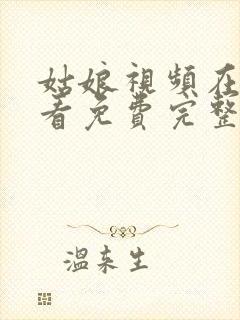 姑娘視頻在
看免費完整
溫来生